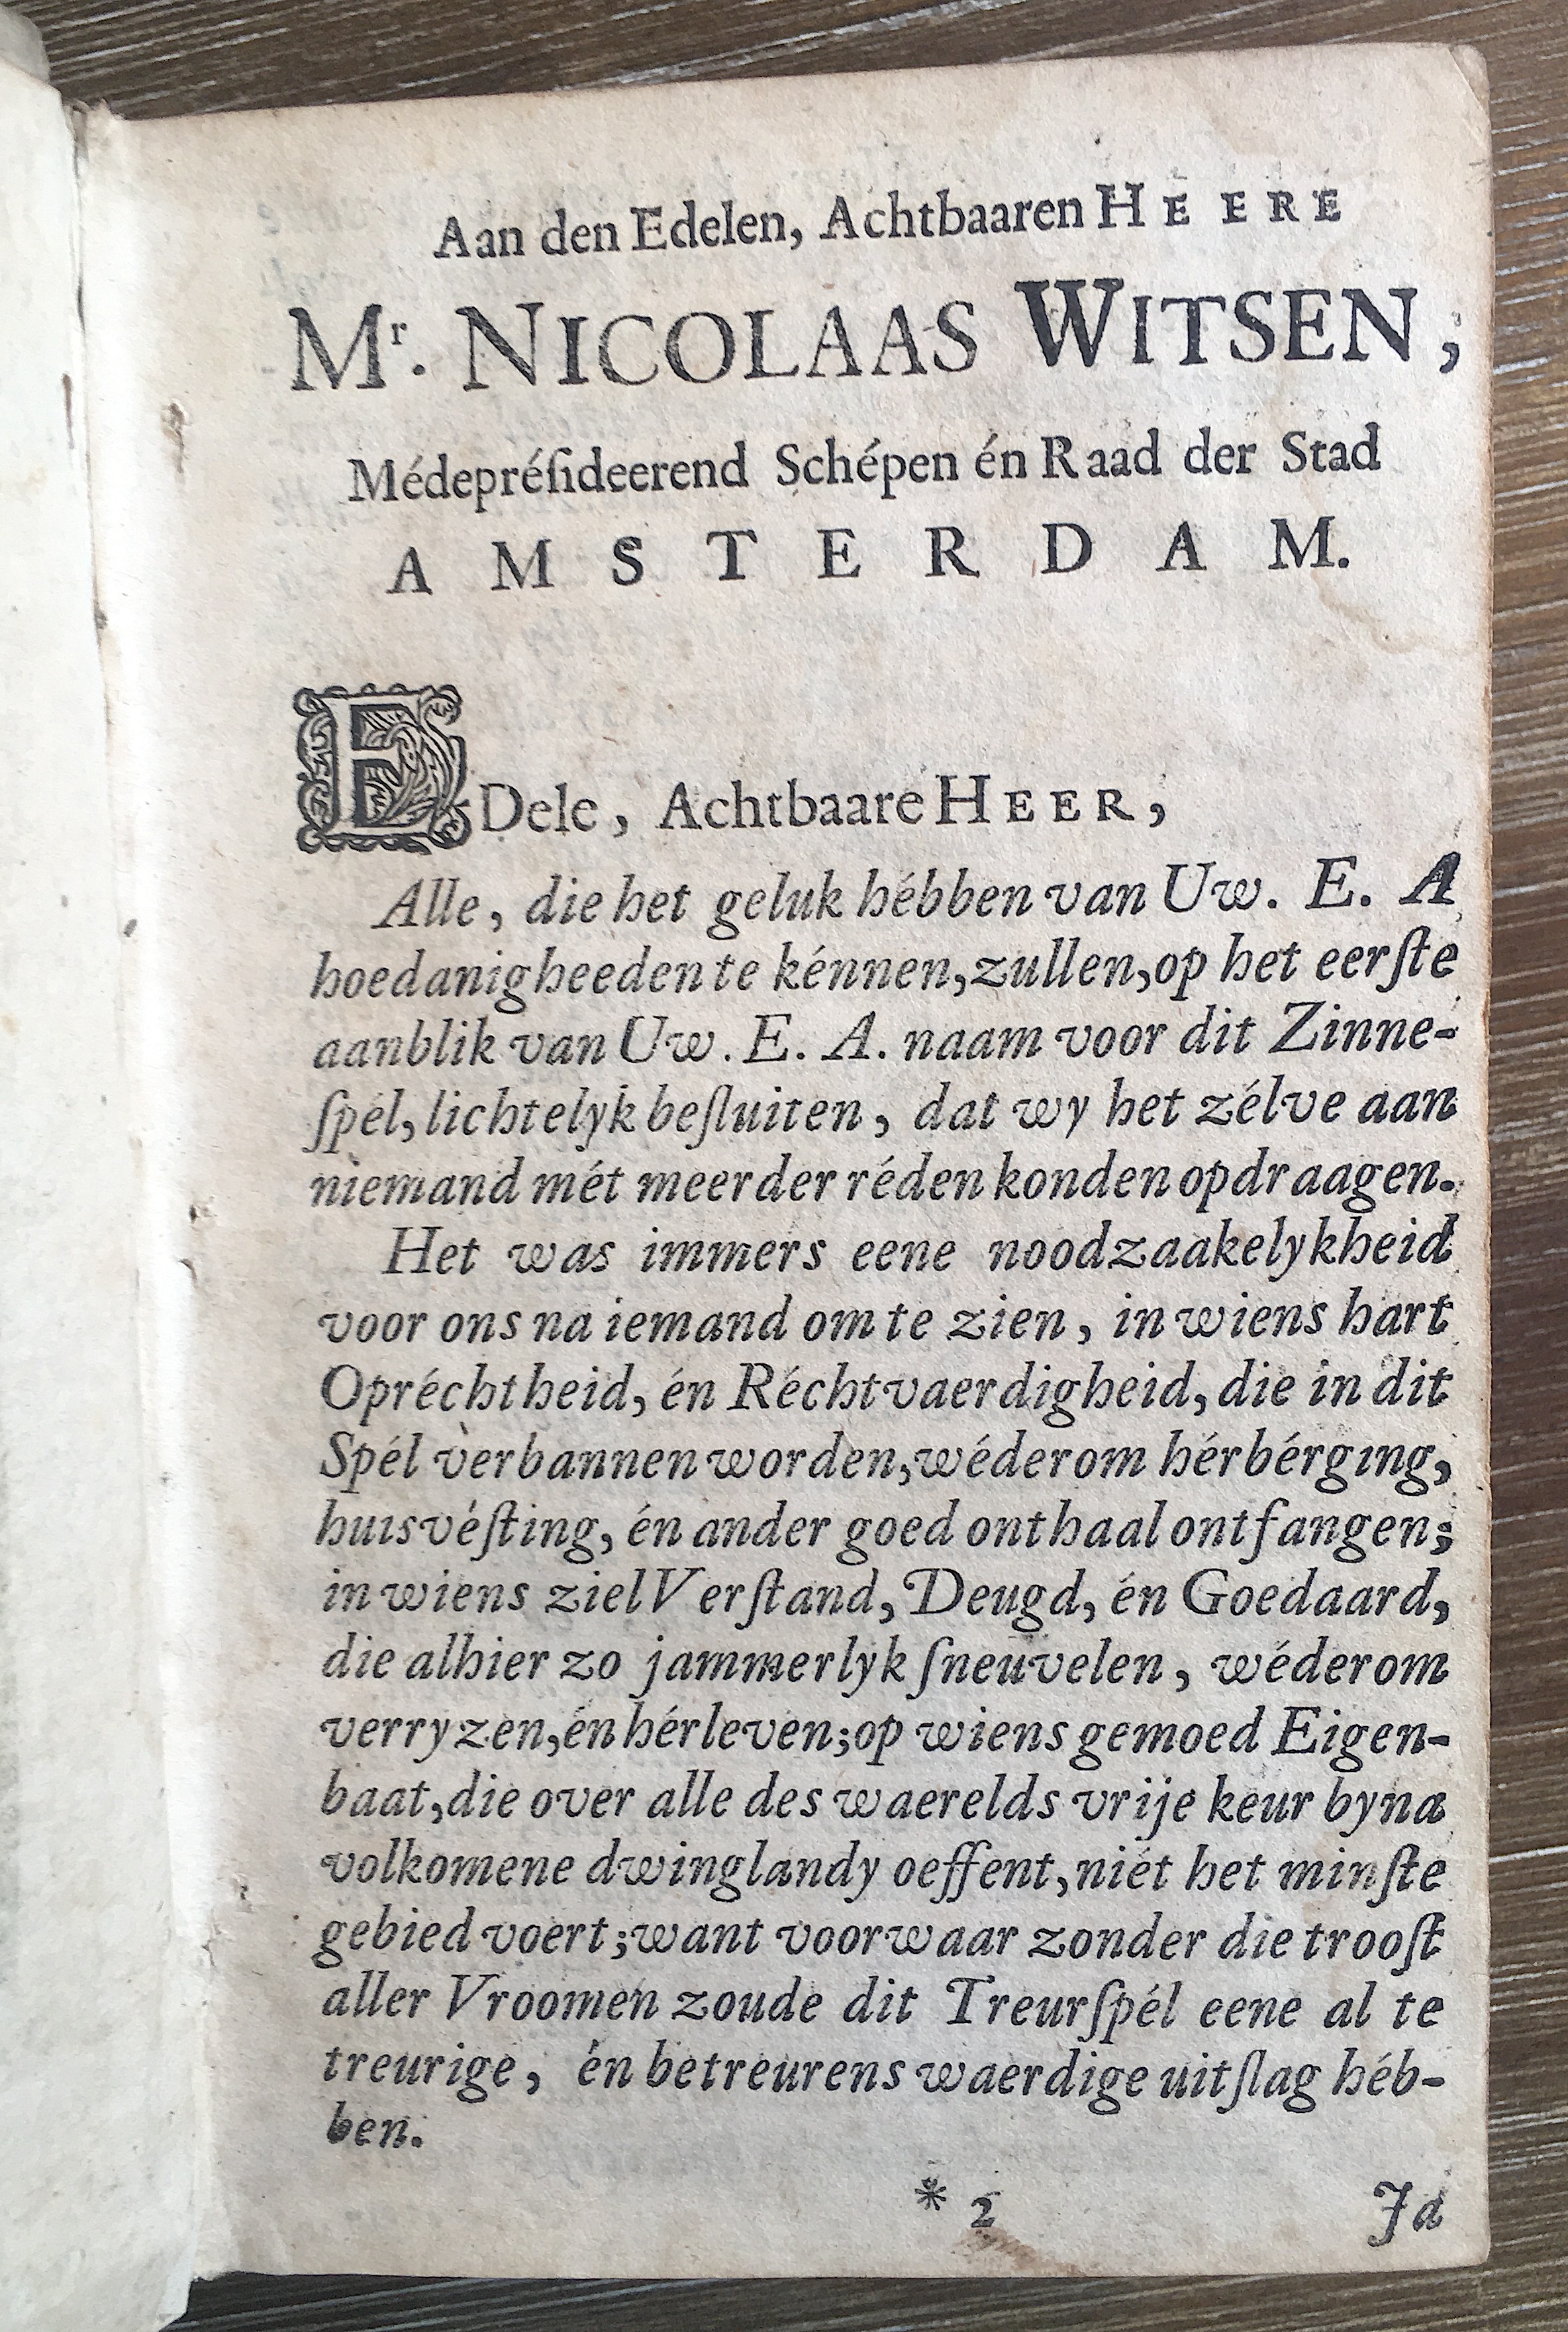 Aan den Edelen, Achtbaaren HEERE
Mr. NICOLAAS WITSEN,
Médepréſideerend Schépen én Raad der Stad
AMSTERDAM.
EDele, Achtbaare HEER,
Alle, die het geluk hébben van Uw. E. A
hoedanigheeden te kénnen, zullen, op het eerſte
aanblik van Uw. E. A. naam voor dit Zinne-
ſpél, lichtelyk beſluiten, dat wy het zélve aan
niemand mét meerder réden konden opdraagen.
Het was immers eene noodzaakelykheid
voor ons na iemand om te zien, in wiens hart
Opréchtheid, én Réchtvaerdigheid, die in dit
Spél verbannen worden, wéderom hérbérging,
huisvéſting, én ander goed onthaal ontfangen;
in wiens ziel Verſtand, Deugd, én Goedaard,
die alhier zo jammerlyk ſneuvelen, wéderom
verryzen, én hérleven; op wiens gemoed Eigen-
baat, die over alle des waerelds vrije keur byna
volkomene dwinglandy oeffent, niét het minſte
gebied voert; want voorwaar zonder die trooſt
aller Vroomen zoude dit Treurſpél eene al te
treurige, én betreurens waerdige uitſlag héb-
ben.
* 2 Ja